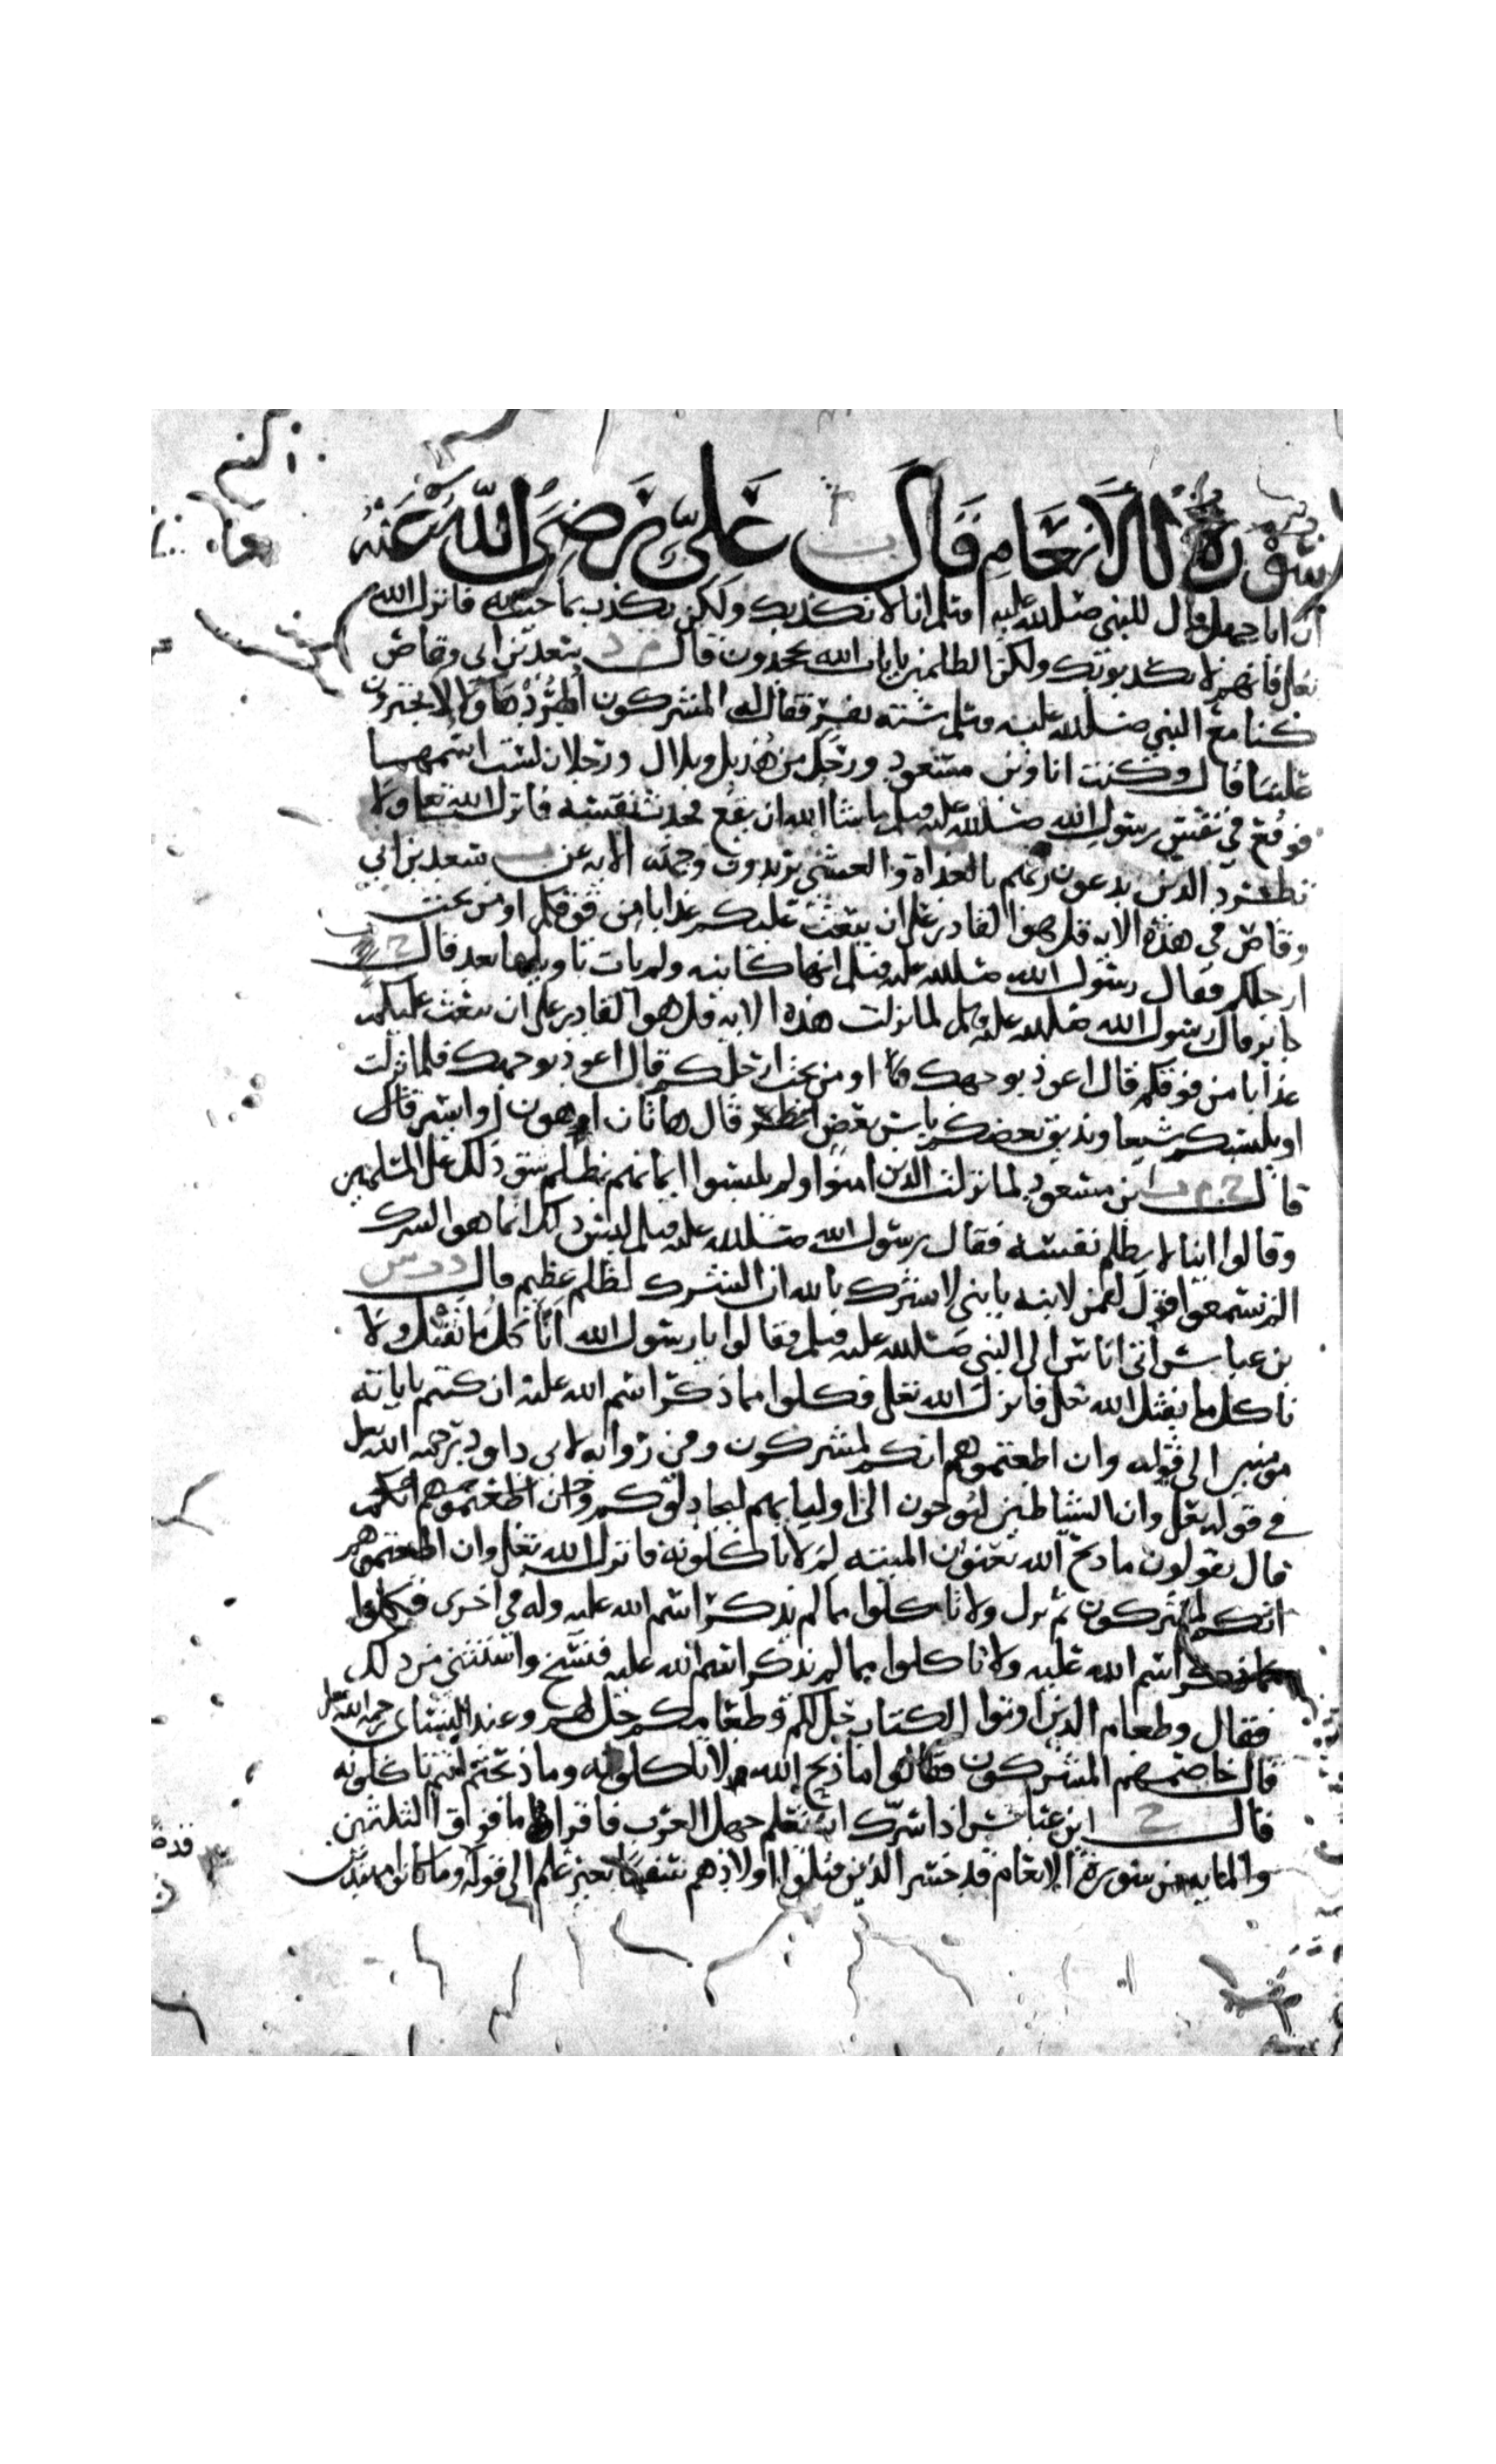 سورة الانعام قال ت علي رضي الله عنه
ان ابا جهل قال للنبي صلى الله عليه وسلم انا لا نكذبك ولكن نكذب بما جيت به فانزل الله
تعلى فانهم لا يكذبونك ولكن الظلمين بايات الله يجحدون قال م د سعد بن ابي وقاص
كنا مع النبي صلى الله عليه وسلم ستة نفر فقال له المشركون اطرد هاولا لا يجترون
علينا قال وكنت انا وبن مسعود ورجل من هذيل وبلال ورجلان لست اسميهما
فوقع في نفس رسول الله صلى الله عليه وسلم ما شا الله ان يقع فحدث نفسه فانزل الله تعا ولا
تطرد الذين يدعون ربهم بالغداة والعشي يريدون وجهه الايه عن ت سعد بن ابي
وقاص في هذه الايه قل هو القادر على ان يبعث عليكم عذابا من فوقكم او من تحت
ارجلكم فقال رسول الله صلى الله عليه وسلم انها كاينه ولم يات تاويلها بعد قال خ
جابر قال رسول الله صلى الله عليه وسلم لما نزلت هذه الايه قل هو القادر على ان يبعث عليكم
عذابا من فوقكم قال اعوذ بوجهك قال او من تحت ارجلكم قال اعوذ بوجهك فلما نزلت
او يلبسكم شيعا ويذيق بعضكم باس بعض قال هاتان اهون او ايسر قال
قال خ م ت ابن مسعود لما نزلت الذين امنوا ولم يلبسوا ايمانهم بظلم شق ذلك على المسلمين
وقالوا اينا لا يظلم نفسه فقال رسول الله صلى الله عليه وسلم ليس ذلك انما هو الشرك
الم تسمعوا قول لقمن لابنه يا بني لا تشرك بالله ان الشرك لظلم عظيم قال د ت س
بن عباس اتى اناس الى النبي صلى الله عليه وسلم فقالوا يا رسول الله انا كل ما نقتل ولا
ناكل ما يقتل الله تعلى فانزل الله تعلى فكلوا مما ذكر اسم الله عليه ان كنتم باياته
مومنين الى قوله وان اطعتموهم انكم لمشركون وفي رواية لابي داود رحمه الله تعلى
في قوله تعلى وان الشياطين ليوحون الى اوليايهم ليجادلوكم وان اطعتموهم انكم
قال يقولون ما ذبح الله تعنون الميته لم لا تاكلونه فانزل الله تعلى وان اطعتموهم
انكم لمشركون ثم نزل ولا تاكلوا مما لم يذكر اسم الله عليه وله في اخرى فكلوا
مما ذكر اسم الله عليه ولا تاكلوا مما لم يذكر اسم الله عليه فنسخ واستثنى من ذلك
فقال وطعام الذين اوتوا الكتاب حل لكم وطعامكم حل لهم وعند النسائ رحمه الله تعلى
قال خاصمهم المشركون فقالوا ما ذبح الله لا تاكلونه وما ذبحتم انتم تاكلونه
قال خ ابن عباس اذا سرك ان تعلم جهل العرب فاقرا ما فوق الثلثين
والمايه من سورة الانعام قد خسر الذين قتلوا اولادهم سفها بغير علم الى قوله وما كانوا مهتدين